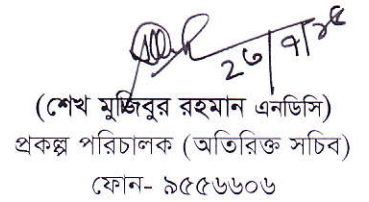 ২৩/৭/২৫
(শেখ মুজিবুর রহমান এনডিসি)
প্রকল্প পরিচালক (অতিরিক্ত সচিব)
ফোন- ৯৫৫৬৬০৬